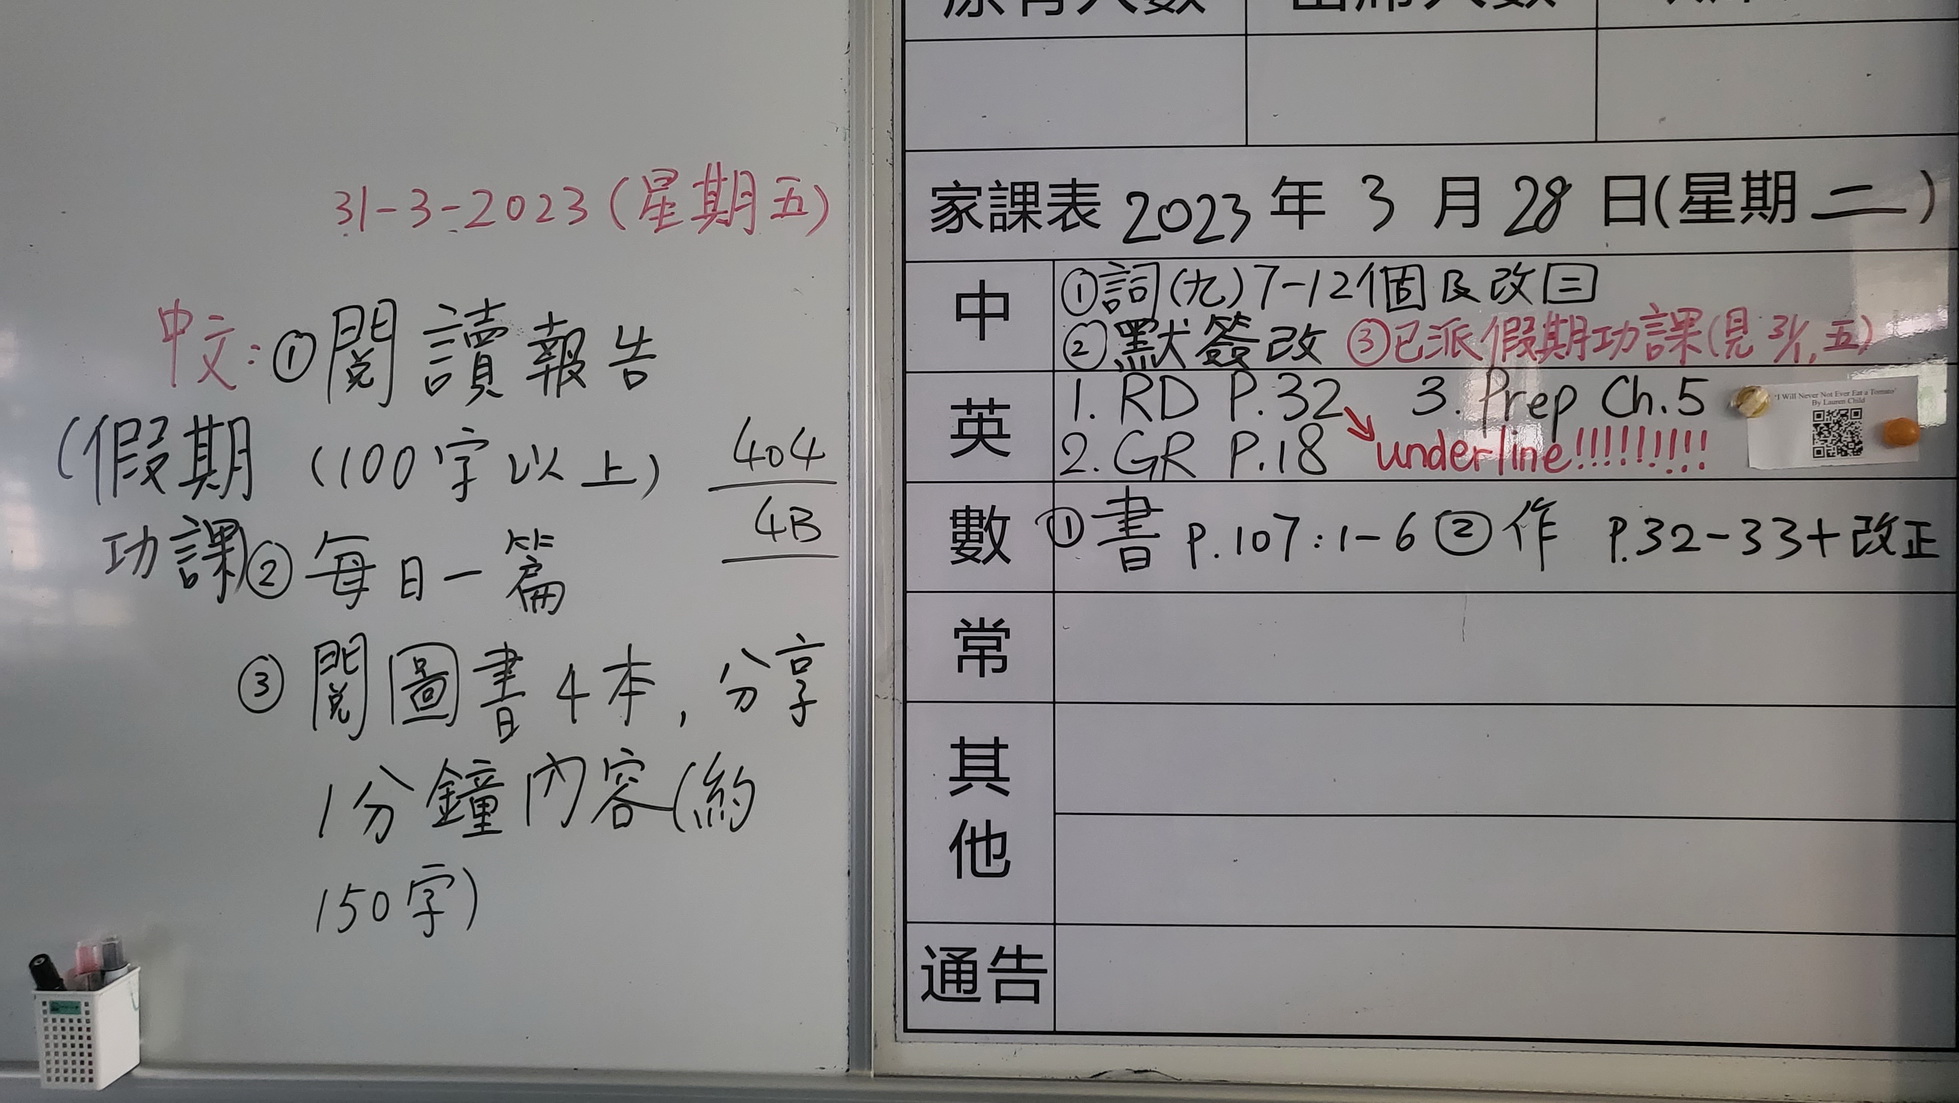 31-3-2023(星期五)
中文:①閱讀報告
(假期 (100字以上)
功課)②每日一篇
③閱圖書4本,分享
1分鐘內容(約
150字)
404
4B
家課表 2023年 3月 28日(星期二)
中 ①詞(九)7-12個及改
②默簽改 ③已派假期功課(見31,五)
英 1. RD P.32 3. Prep Ch.5
2. GR P.18 underline!!!!!!!!!
'I Will Never Not Ever Eat a Tomato'
By Lauren Child
數 ①書 P.107:1-6 ②作 P.32-33+改正
常
其他
通告